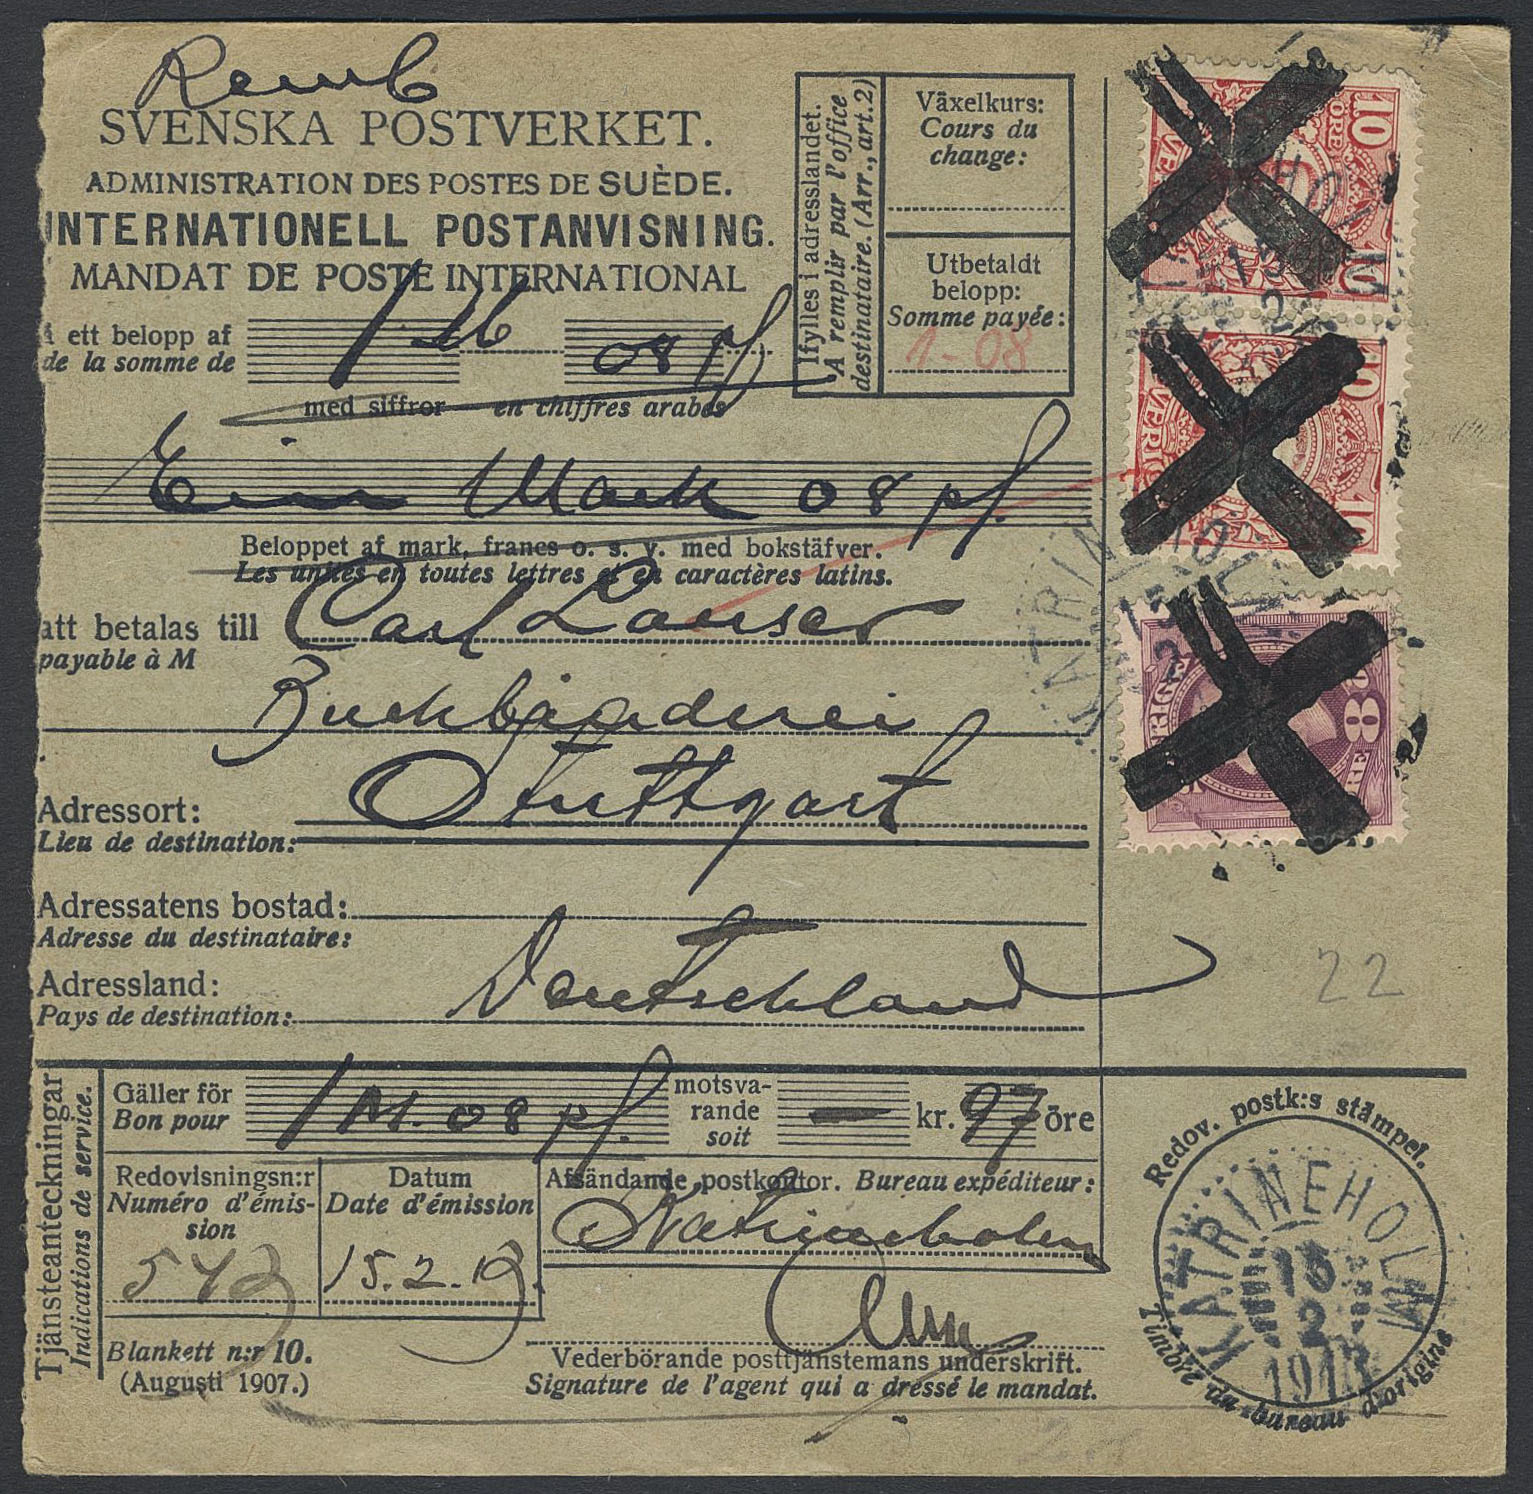 Remb
SVENSKA POSTVERKET.
ADMINISTRATION DES POSTES DE SUÈDE.
INTERNATIONELL POSTANVISNING.
MANDAT DE POSTE INTERNATIONAL
å ett belopp af
de la somme de
1 M 08 pf
med siffror en chiffres arabes
Ifylles i adresslandet.
A remplir par l'office
destinataire. (Arr., art. 2)
Växelkurs:
Cours du
change:
Utbetaldt
belopp:
Somme payée:
1-08
Ein Mark 08 pf.
Beloppet af mark, francs o. s. v. med bokstäfver.
Les unités en toutes lettres et en caractères latins.
att betalas till Carl Lauser
payable à M
Buchbinderei
Adressort: Stuttgart
Lieu de destination:
Adressatens bostad:
Adresse du destinataire:
Adressland: Deutschland
Pays de destination:
10
ÖRE
SVERIGE
10
10
SVERIGE
10
SVERIGE
8
ÖRE
KATRINEHOLM
22
Tjänsteanteckningar
Indications de service.
Gäller för
Bon pour
1 M. 08 pf.
motsva-
rande
soit
— kr. 97 öre
Redovisningsn:r
Numéro d'émis-
sion
542
Datum
Date d'émission
15.2.13.
Afsändande postkontor. Bureau expéditeur:
Katrineholm
Blankett n:r 10.
(Augusti 1907.)
Vederbörande posttjänstemans underskrift.
Signature de l'agent qui a dressé le mandat.
Redov. postk:s stämpel.
KATRINEHOLM
15
2
1913
Timbre du bureau d'origine